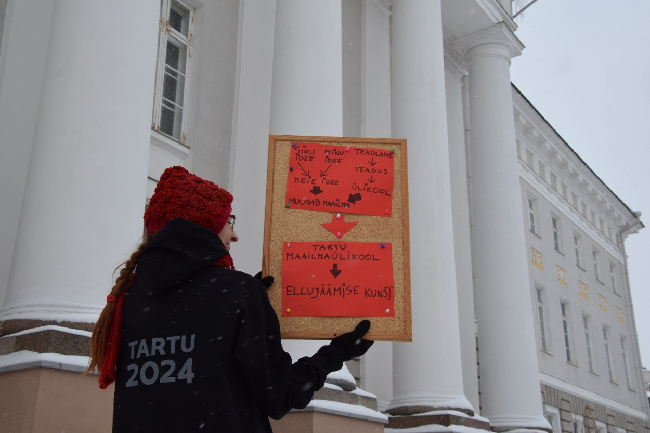 SINU IDEE MINU IDEE
MEIE IDEE
MUUDAB MAAILMA
TEADLANE
TEADUS
ÜLIKOOL
TARTU
MAAILMAÜLIKOOL
ELLUJÄÄMISE KUNST
TARTU
2024